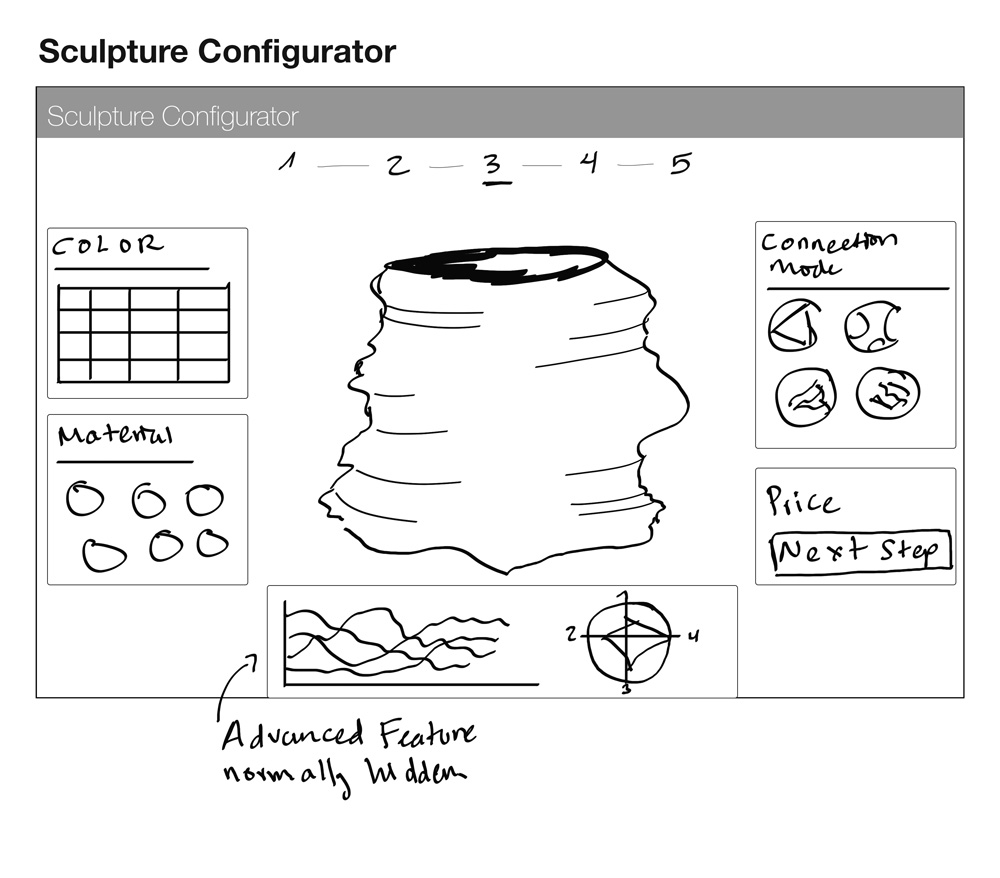 Sculpture Configurator
Sculpture Configurator
1 — 2 — 3 — 4 — 5
COLOR
Material
Connection
Mode
Price
Next Step
1
2
4
3
Advanced Feature
normally hidden